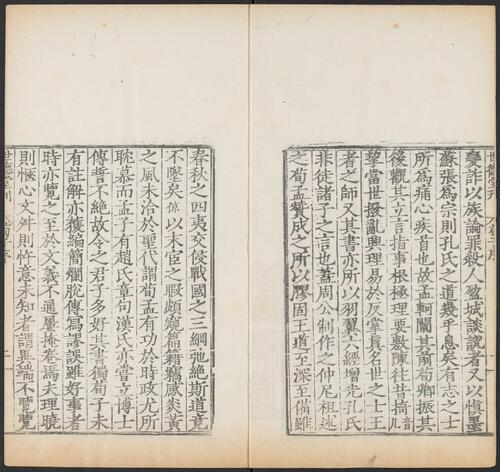 變詐以族論罪殺人盈城談說者又以慎墨
蘇張爲宗則孔氏之道幾乎息矣有志之士
所爲痛心疾首也故孟軻闢其前荀卿振其
後觀其立言指事根極理要敷陳往昔掎
挈當世撥亂興理易於反掌真名世之士王
者之師又其書亦所以羽翼六經增光孔氏
非徒諸子之言也蓋周公制作之仲尼祖述
之荀孟贊成之所以膠固王道至深至備雖
春秋之四夷交侵戰國之三綱弛絕斯道竟
不墜矣倞以末宦之暇頗窺篇籍竊感炎黃
之風未洽於聖代謂荀孟有功於時政尤所
耽慕而孟子有趙氏章句漢氏亦嘗立博士
傳習不絕故今之君子多好其書獨荀子未
有註解亦復編簡爛脫傳寫謬誤雖好事者
時亦覽之至於文義不通屢掩卷焉夫理曉
則愜心文舛則忤意未知者謂異端不覽覽